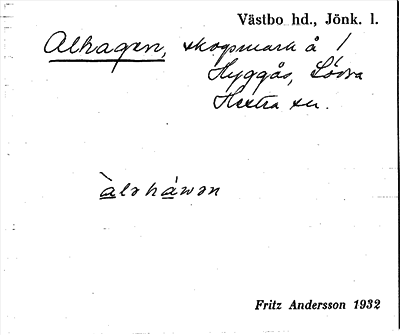 Västbo hd., Jönk. l.
Alhagen, skogsmark å 1
Hyggås, Södra
Hestra sn.
àləháwən
Fritz Andersson 1932